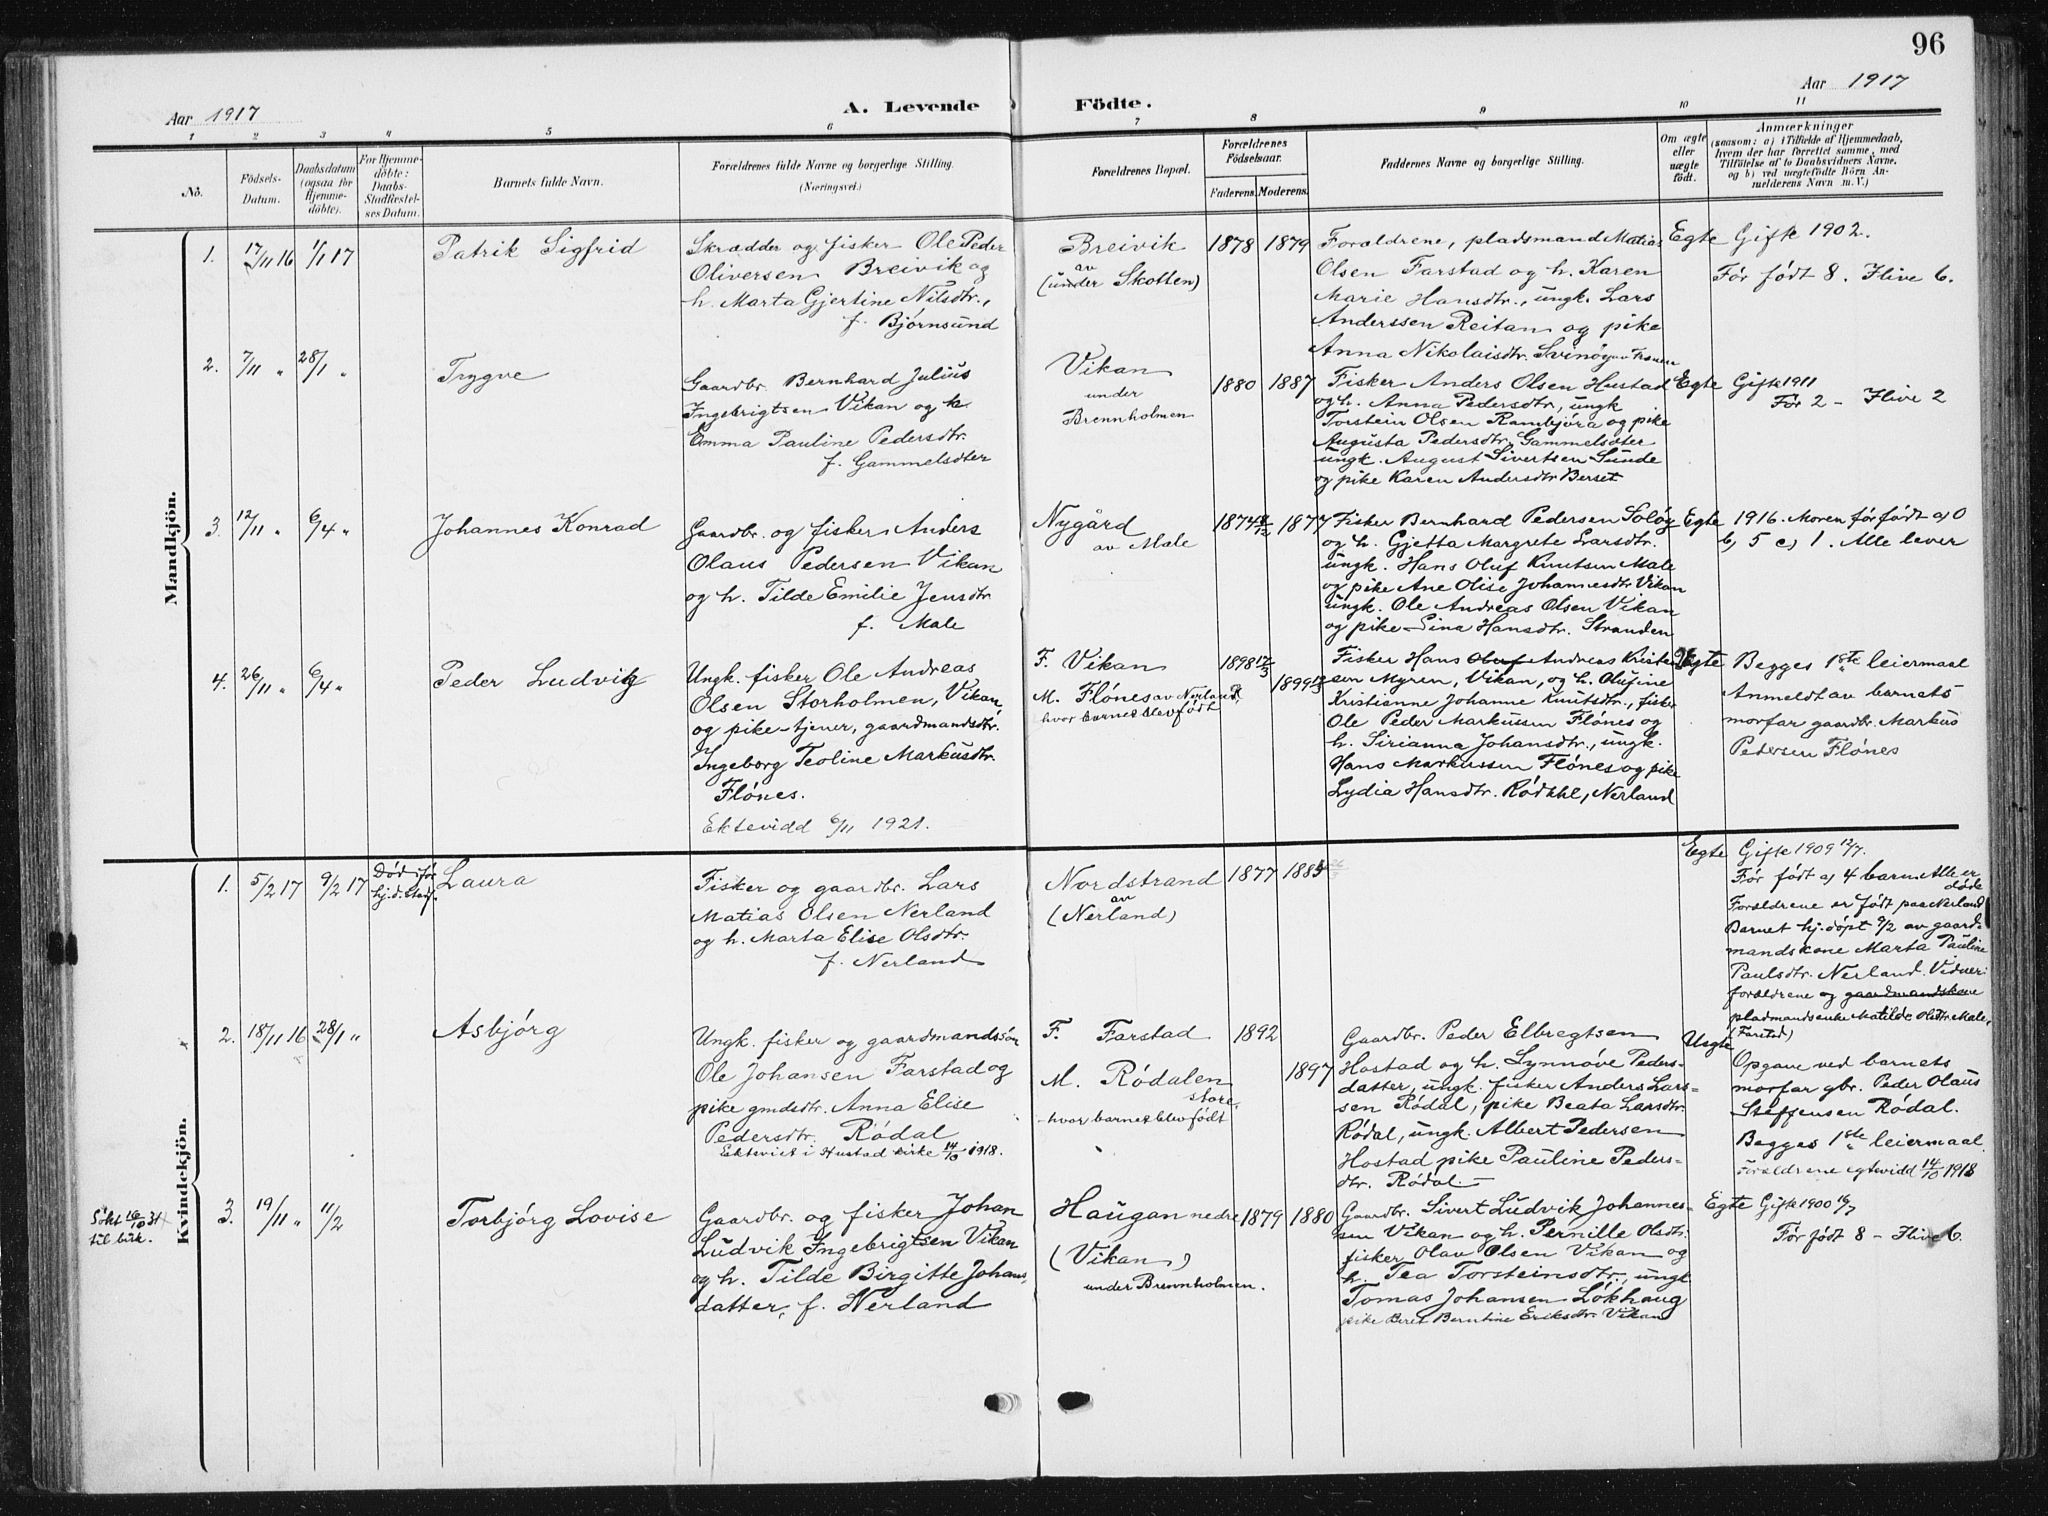 96
Aar 1917
A. Levende Födte.
Aar 1917
1 2 3 4 5 6 7 8 9 10 11
No.
Födsels-
Datum.
Daabsdatum
(ogsaa for
Hjemme-
döbte).
For Hjemme-
döbte:
Daabs-
Stadfestel-
ses Datum.
Barnets fulde Navn.
Forældrenes fulde Navne og borgerlige Stilling.
(Næringsvei.)
Forældrenes Bopæl.
Forældrenes
Födselsaar.
Faderens. Moderens.
Faddernes Navne og borgerlige Stilling.
Om ægte
eller
uægte
födt.
Anmærkninger
(saasom: a) i Tilfælde af Hjemmedaab,
hvem der har forrettet samme, med
Tilföielse af to Daabsvidners Navne.
og b) ved uægtefödte Börn An-
melderens Navn m. V.)
Mandkjön.
1. 17/11 16 1/1 17
Patrik Sigfrid
Skrædder og fisker Ole Peder
Oliversen Breivik og
h. Marta Gjertine Nilsdtr.,
f. Bjørnsund
Breivik
av
(under Skotten)
1878 1879
Forældrene, pladsmand Matias
Olsen Farstad og h. Karen
Marie Hansdtr., ungk. Lars
Anderssen Reitan og pike
Anna Nikolaisdtr. Svinøy
Egte
Gift 1902.
Før født 8. Ilive 6.
2. 7/11 " 28/1 "
Trygve
Gaardbr. Bernhard Julius
Ingebrigtsen Vikan og h.
Emma Pauline Pedersdtr.
f. Gammelsæter
Vikan
under
Brennholmen
1880 1887
Fisker Anders Olsen Hustad
og h. Anna Pedersdtr., ungk
Torstein Olsen Rambjøra og pike
Augusta Pedersdtr. Gammelsæter
ungk. August Sivertsen Sunde
og pike Karen Andersdtr Berset
Egte
Gift 1911
Før 2 - Ilive 2
3. 12/11 " 6/4 "
Johannes Konrad
Gaardbr. og fisker Anders
Olaus Pedersen Vikan
og h. Tilde Emilie Jensdtr.
f. Male
Nygård
av Male
1874 1877
Fisker Bernhard Pedersen Soløy
og h. Gjetta Margrete Larsdtr.
ungk. Hans Oluf Knutsen Male
og pike Ane Olise Johannesdtr. Vikan
ungk. Ole Andreas Olsen Vikan
og pike Lina Hansdtr. Stranden
Egte
1916. Moren før født a) 0
b) 5 c) 1. Alle lever
4. 26/11 " 6/4 "
Peder Ludvig
Ungk. fisker Ole Andreas
Olsen Storholmen, Vikan,
og pike-tjener, gaardmandsdtr.
Ingeborg Teoline Markusdtr.
Flónes.
Ektevidd 6/11 1921.
F. Vikan
M. Flónes av Nerland,
hvor barnet blev født
1898 17/3
1899
Fisker Hans Oluf Andreas Kristen
sen Myren, Vikan, og h. Olufine
Kristianne Johanne Knutsdtr., fisker
Ole Peder Markussen Flónes og
h. Sirianna Johansdtr., ungk.
Hans Markussen Flónes og pike
Lydia Hansdtr. Rødahl, Nerland
Uegte
Begges 1ste leiermaal
Anmeldt av barnets
morfar gaardbr. Markus
Pedersen Flónes
Kvindekjön.
1. 5/2 17 9/2 17
Død før
hj.d. stadf.
Laura
Fisker og gaardbr. Lars
Matias Olsen Nerland
og h. Marta Elise Olsdtr.
f. Nerland
Nordstrand
av
(Nerland)
1877 1885
Egte
Gift 1909 12/7.
Før født a) 4 barn. Alle er
døde
Forældrene er født paa Nerland
Barnet hj.døpt 9/2 av gaard-
mandskone Marta Pauline
Paulsdtr. Nerland. Vidner:
forældrene og gaardmandskone
pladmandsenke Matilde Olsdtr. Male,
(Farstad)
2. 18/11 16 28/1 "
Asbjørg
Ungk. fisker og gaardmandssøn
Ole Johansen Farstad og
pike gmdsdtr. Anna Elise
Pedersdtr. Ródal
Ekteviet i Hustad kirke 14/10 1918.
F. Farstad
M. Ródalen
store,
hvor barnet blev født
1892
1897
Gaardbr. Peder Elbregtsen
Hostad og h. Synnøve Peders-
datter, ungk. fisker Anders Lars-
sen Ródal, pike Beata Larsdtr.
Ródal, ungk. Albert Pedersen
Hostad pike Pauline Peders-
dtr. Ródal.
Uegte
Opgave ved barnets
morfar gbr. Peder Olaus
Steffensen Ródal.
Begges 1ste leiermaal
Forældrene egtevidd 14/10 1918
Søkt 16/10 31
til birk.
3. 19/11 " 11/2
Torbjørg Lovise
Gaardbr. og fisker Johan
Ludvik Ingebrigtsen Vikan
og h. Tilde Birgitte Johans-
datter, f. Nerland
Haugan nedre
(Vikan)
under Brennholmen.
1879 1880
Gaardbr. Sivert Ludvik Johannes-
sen Vikan og h. Pernille Olsdtr.
fisker Olav Olsen Vikan og
h. Tea Torsteinsdtr., ungk.
Tomas Johansen Løkhaug
pike Beret Berntine Eriksdtr. Vikan
Egte
Gift 1900
Før født 8 - Ilive 6.